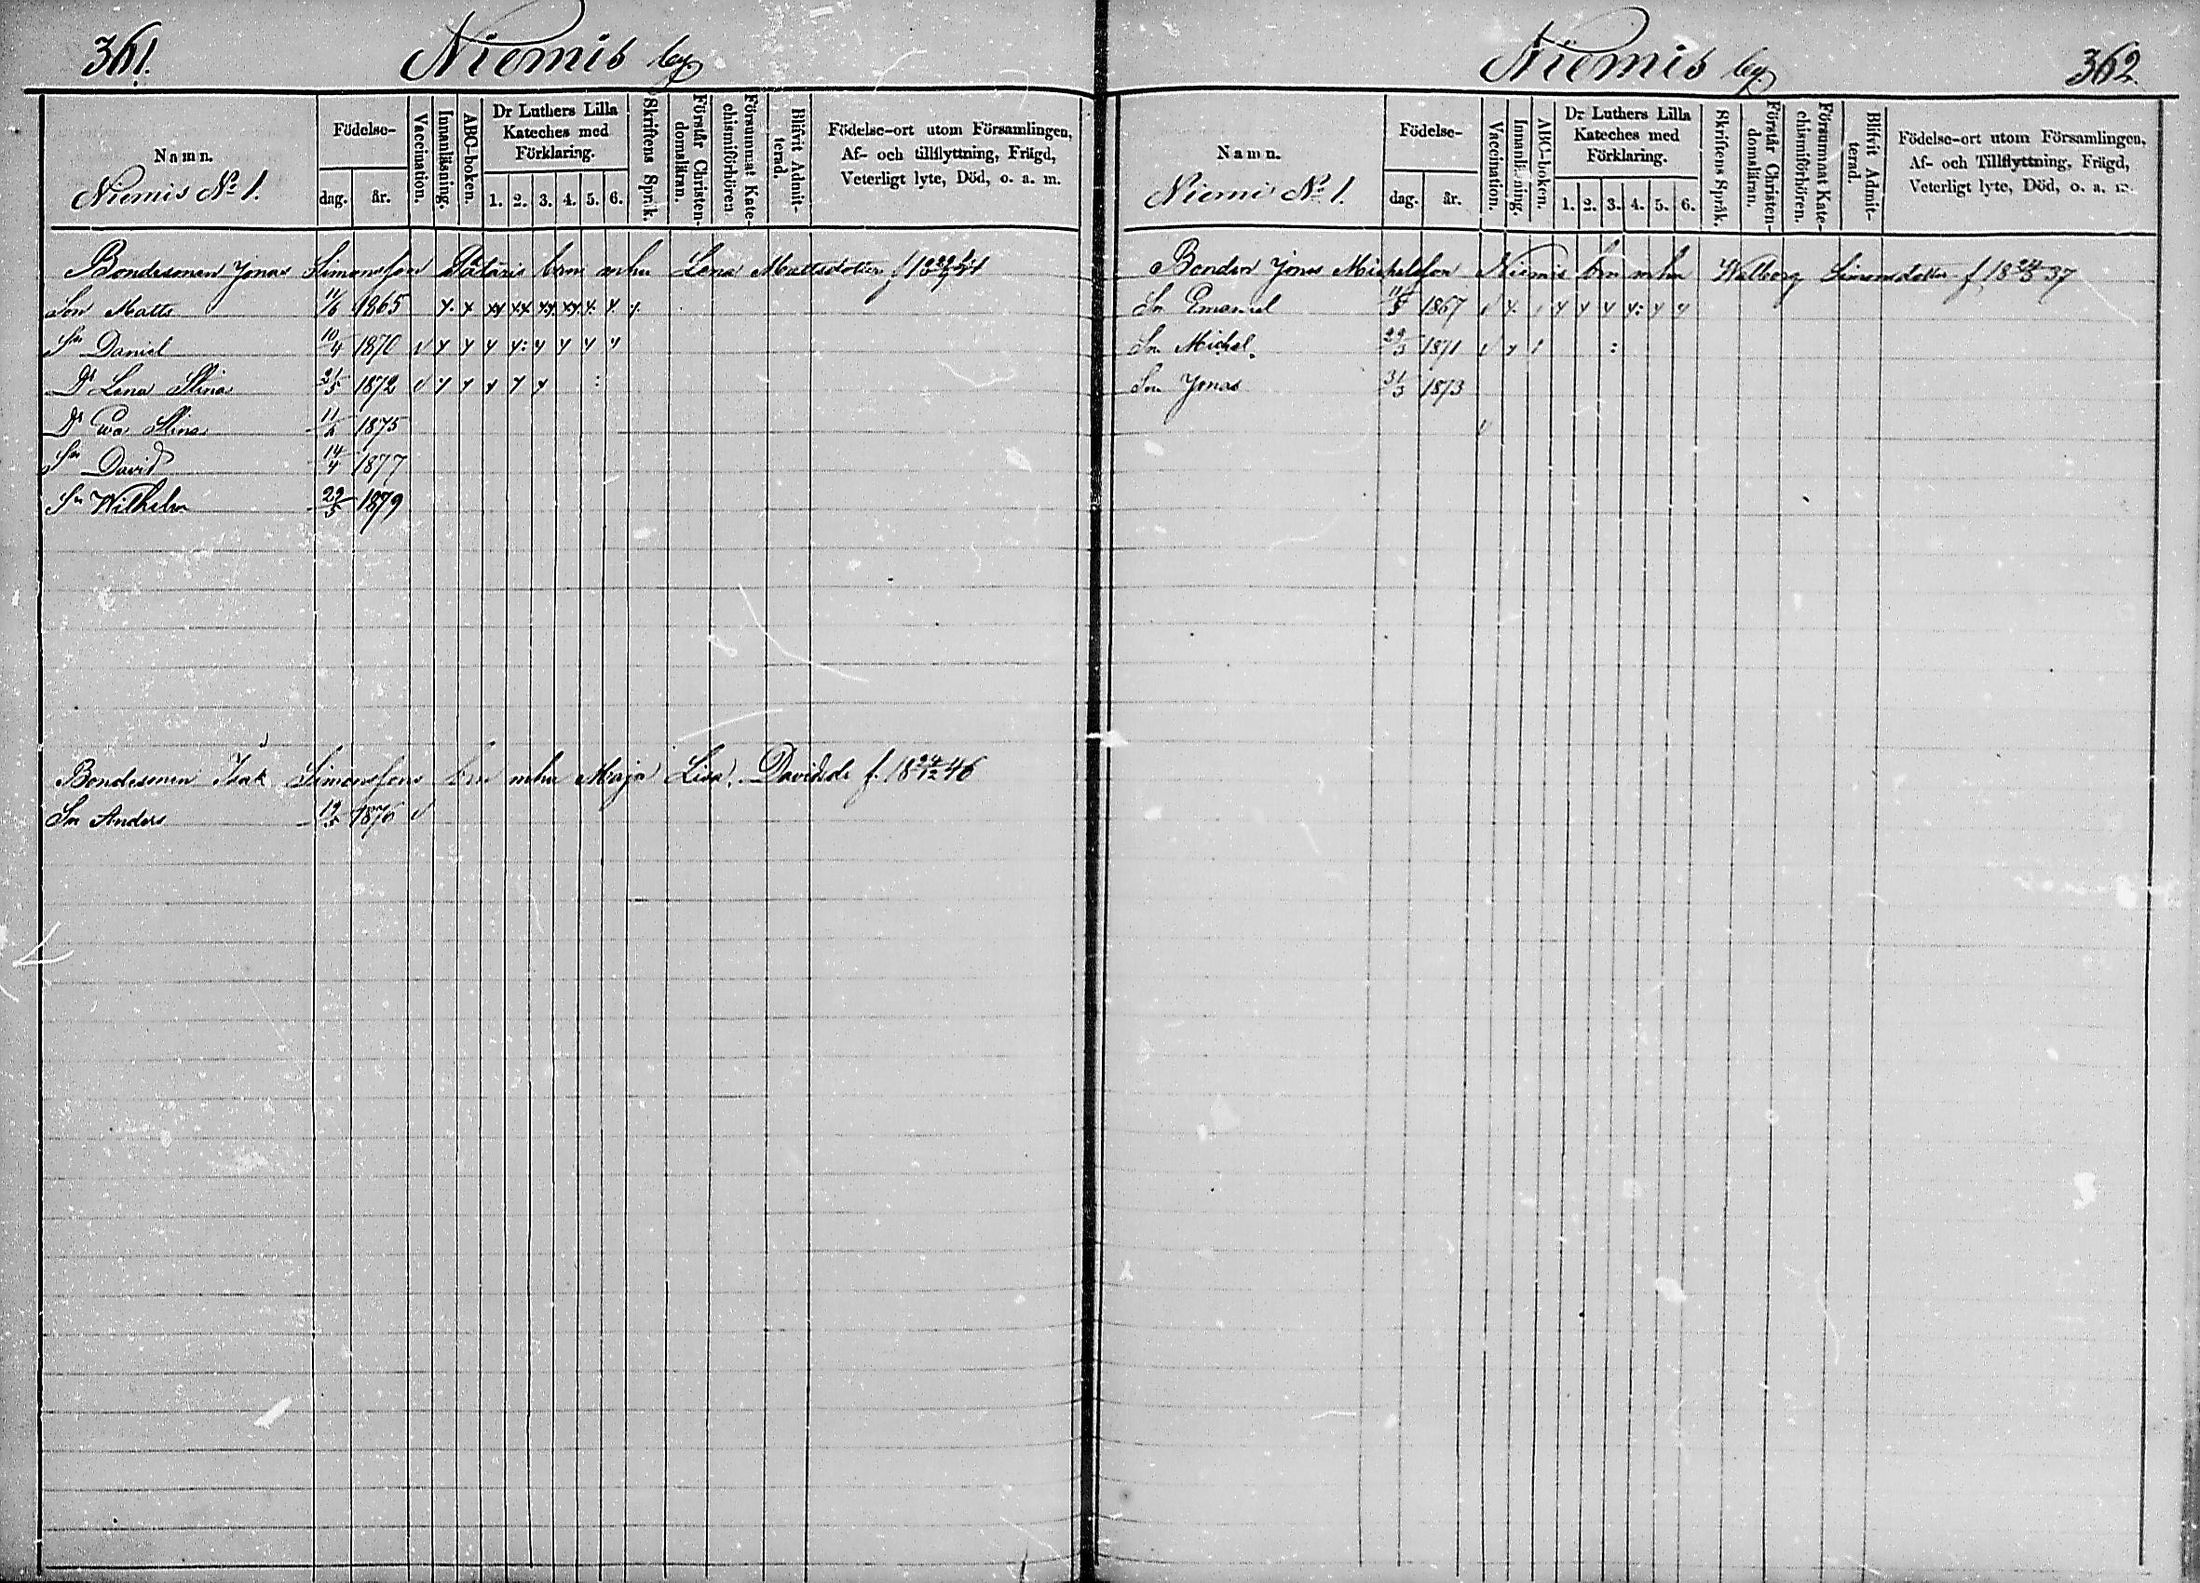 361.
Niemis by.
Namn.
Niemis No 1.
Födelse-
dag.
år.
Vaccination.
Innanläsning.
ABC-boken.
Dr Luthers Lilla
Kateches med
Förklaring.
1. 2. 3. 4. 5. 6.
Skriftens Språk.
Förstår Christen-
domsläran.
Försummat Kate-
chismiförhören.
Blifvit Admit-
terad.
Födelse-ort utom Församlingen,
Af- och tillflyttning, Frägd,
Veterligt lyte, Död, o. a. m.
Bondesonen Jonas Simonsson barn m hu Lena Mattsdotter
Son Matts 11/6 1865
Sn Daniel 10/4 1870
Dr Lena Stina 21/5 1872
Dr Eva Stina 1875
Sn David 14/4 1877
Sn Wilhelm 22/5 1879
Bondesonen Isak Simonssons brn m hu Maja Lisa Davidsdr f. 18 24/12 46
Sn Anders 19/5 1876
Niemis by.
362.
Namn.
Niemi No 1.
Födelse-
dag.
år.
Vaccination.
Innanläsning.
ABC-boken.
Dr Luthers Lilla
Kateches med
Förklaring.
1. 2. 3. 4. 5. 6.
Skriftens Språk.
Förstår Christen-
domsläran.
Försummat Kate-
chismiförhören.
Blifvit Admit-
terad.
Födelse-ort utom Församlingen,
Af- och Tillflyttning, Frägd,
Veterligt lyte, Död, o. a. m.
Bonden Jonas Michelsson Niemis brn m hu Walborg Simonsdotter f 18 24/3 37
Sn Emanuel 1867
Sn Michel 22/3 1871
Son Jonas 31/3 1873